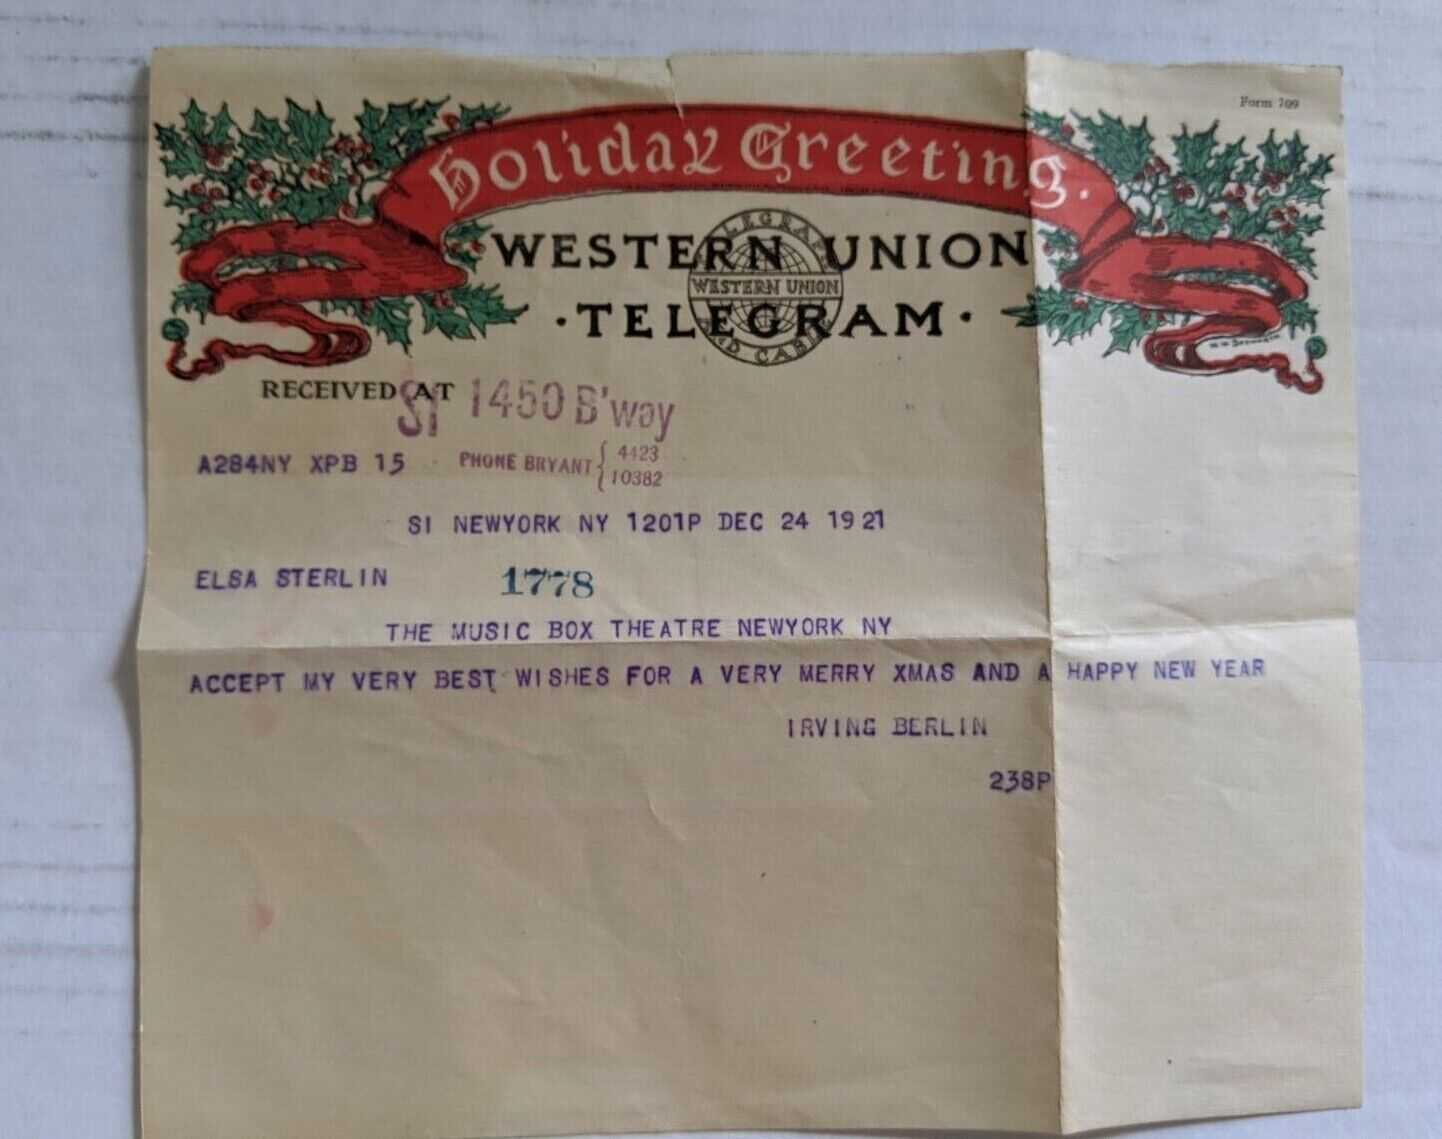 Form 709
Holiday Greeting.
WESTERN UNION
TELEGRAPH
WESTERN UNION
AND CABLE
·TELEGRAM·
RECEIVED AT SI 1450 B'way
A284NY XPB 15 PHONE BRYANT { 4423
10382
SI NEWYORK NY 1201P DEC 24 1921
ELSA STERLIN 1778
THE MUSIC BOX THEATRE NEWYORK NY
ACCEPT MY VERY BEST WISHES FOR A VERY MERRY XMAS AND A HAPPY NEW YEAR
IRVING BERLIN
238P